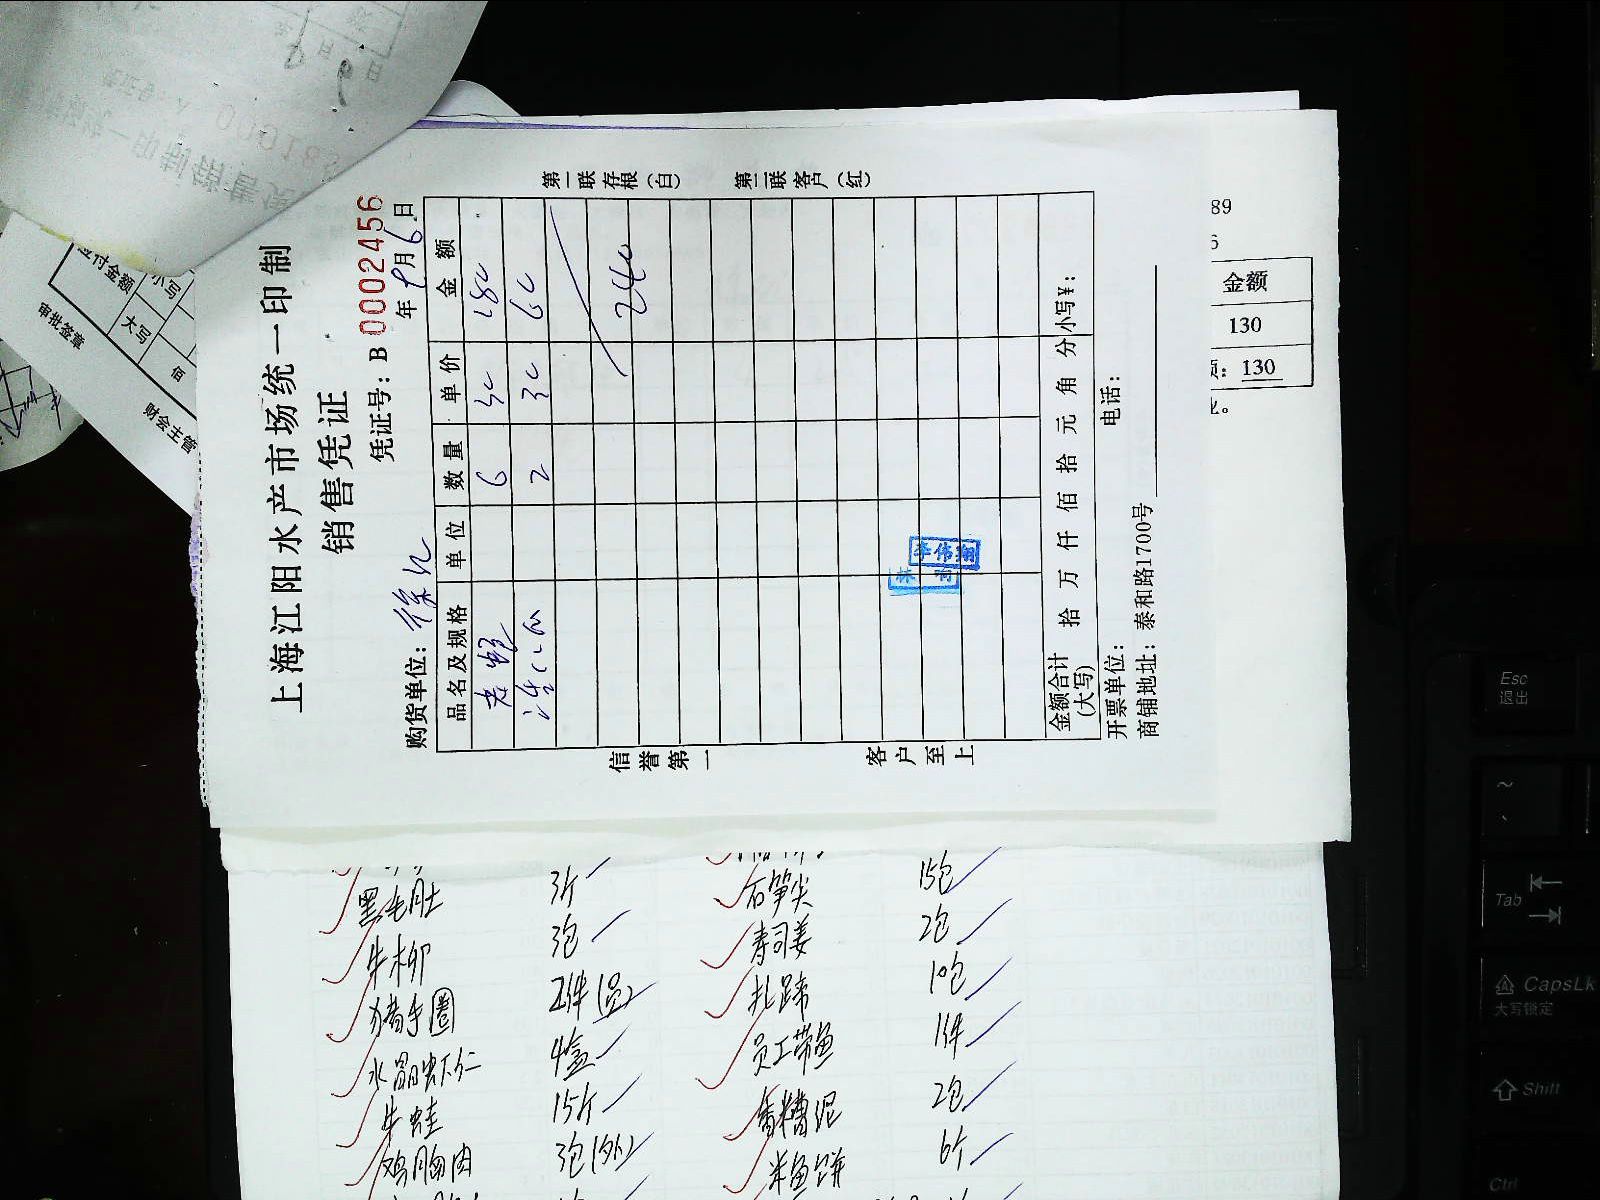 上海江阳水产市场统一印制
销售凭证
凭证号：B 0002456
购货单位： 年9月6日
品名及规格 单位 数量 单价 金额
6 30 180
2 30 60
240
金额合计(大写) 拾 万 仟 佰 拾 元 角 分 小写¥：
开票单位： 电话：
商铺地址：泰和路1700号
信誉第一 客户至上
第一联存根（白） 第二联客户（红）
李伟翔
应付金额 小写
大写
佰
审批签章
财会主管
89
6
金额
130
130
黑毛肚 3斤
牛柳 3包
猪手圈 2件(员)
水晶虾仁 4盒
牛蛙 15斤
鸡胸肉 3包(外)
石笋尖 15包
寿司姜 2包
扎蹄 10包
员工带鱼 1件
香糟泥 2包
米鱼饼 6斤
Esc
退出
~
Tab
CapsLk
大写锁定
Shift
Ctrl